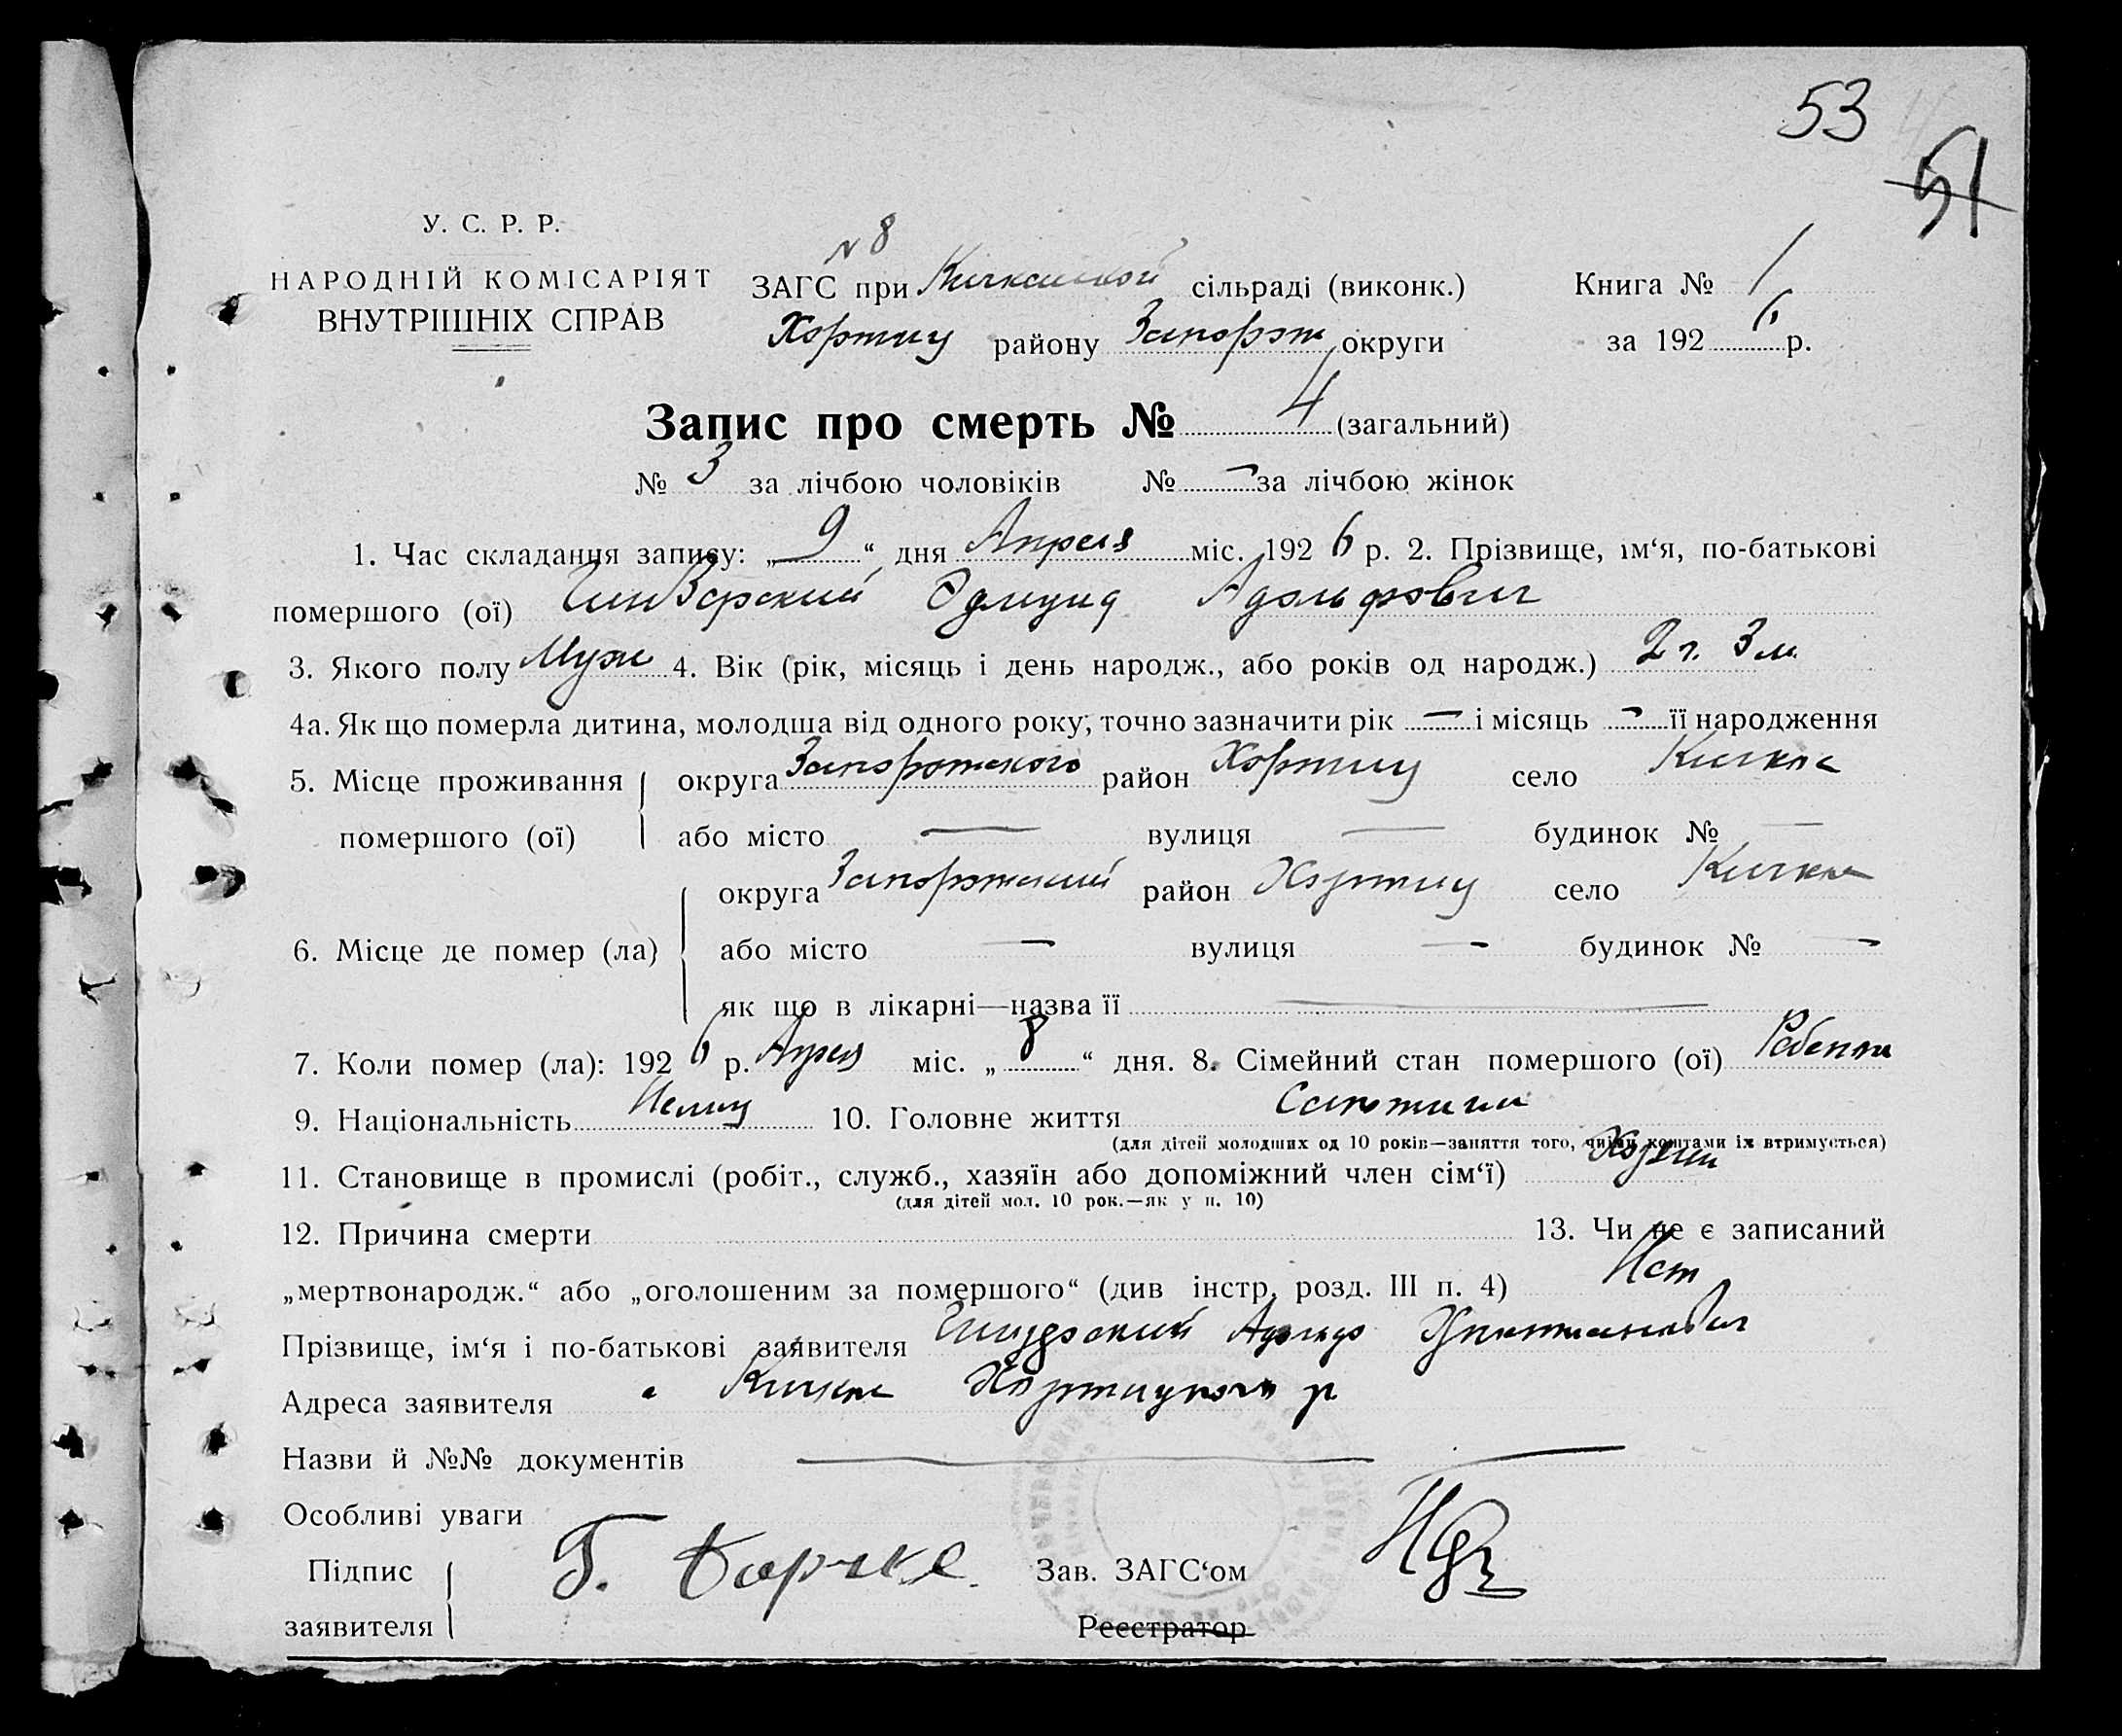 53
51
У. С. Р. Р.
НАРОДНІЙ КОМІСАРІЯТ
ВНУТРІШНІХ СПРАВ
N 8
ЗАГС при Кичкасской сільраді (виконк.)
Хортиц району Запорож округи
Книга № 1
за 1926 р.
Запис про смерть № 4 (загальний)
№ 3 за лічбою чоловіків № — за лічбою жінок
1. Час складання запису: „ 9 “ дня Апреля міс. 1926 р. 2. Прізвище, ім‘я, по-батькові
помершого (ої) Эдмунд Адольфович
3. Якого полу Муж 4. Вік (рік, місяць і день народж., або років од народж.) 2 г. 3 м.
4а. Як що померла дитина, молодша від одного року, точно зазначити рік — і місяць — її народження
5. Місце проживання округа Запорожского район Хортиц село Кичкас
помершого (ої) або місто — вулиця — будинок № —
округа Запорожский район Хортиц село Кичкас
6. Місце де помер (ла) або місто — вулиця — будинок № —
як що в лікарні—назва її —
7. Коли помер (ла): 1926 р. Апреля міс. „ 8 “ дня. 8. Сімейний стан помершого (ої) Ребенок
9. Національність Немец 10. Головне життя
(для дітей молодших од 10 років—заняття того, чиїми коштами їх втримується)
11. Становище в промислі (робіт., служб., хазяїн або допоміжний член сім‘ї) Хозяин
(для дітей мол. 10 рок.—як у п. 10)
12. Причина смерти 13. Чи не є записаний
„мертвонародж.“ або „оголошеним за помершого“ (див інстр. розд. III п. 4) Нет
Прізвище, ім‘я і по-батькові заявителя Адольф
Адреса заявителя с Кичкас Хортицкого р
Назви й №№ документів —
Особливі уваги
Підпис Г. Зав. ЗАГС‘ом
заявителя Реєстратор